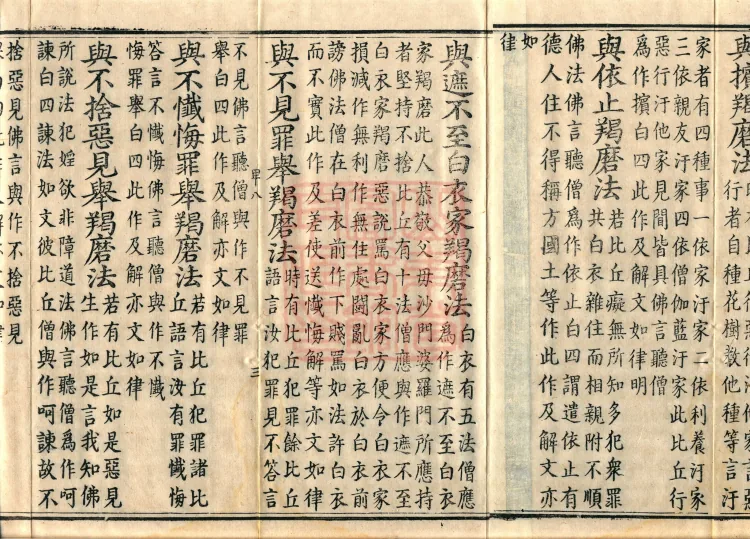 與擯羯磨法行者自種花樹敎他種等言汙
家者有四種事一依家汙家二依利養汙家
三依親友汙家四依僧伽藍汙家此比丘行
惡行汙他家見聞皆具佛言聽僧
爲作擯白四此作及解文如律明
與依止羯磨法若比丘癡無所知多犯衆罪
共白衣雜住而相親附不順
佛法佛言聽僧爲作依止白四謂遣依止有
德人住不得稱方國土等作此作及解文亦
如
律
與遮不至白衣家羯磨法白衣有五法僧應
爲作遮不至白衣
家羯磨此人恭敬父母沙門婆羅門所應持
者堅持不捨比丘有十法僧應與作遮不至
白衣家羯磨惡說罵白衣家方便令白衣家
損減作無利作無住處鬪亂白衣於白衣前
謗佛法僧在白衣前作下賤罵如法許白衣
而不實此作及差使送懺悔解等亦文如律
與不見罪舉羯磨法時有比丘犯罪餘比丘
語言汝犯罪見不答言
不見佛言聽僧與作不見罪
舉白四此作及解亦文如律
與不懺悔罪舉羯磨法若有比丘犯罪諸比
丘語言汝有罪懺悔
答言不懺悔佛言聽僧與作不懺
悔罪舉白四此作及解亦文如律
與不捨惡見舉羯磨法若有比丘如是惡見
生作如是言我知佛
所說法犯婬欲非障道法佛言聽僧爲作呵
諫白四諫法如文彼比丘僧與作呵諫故不
捨惡見佛言與作不捨惡見